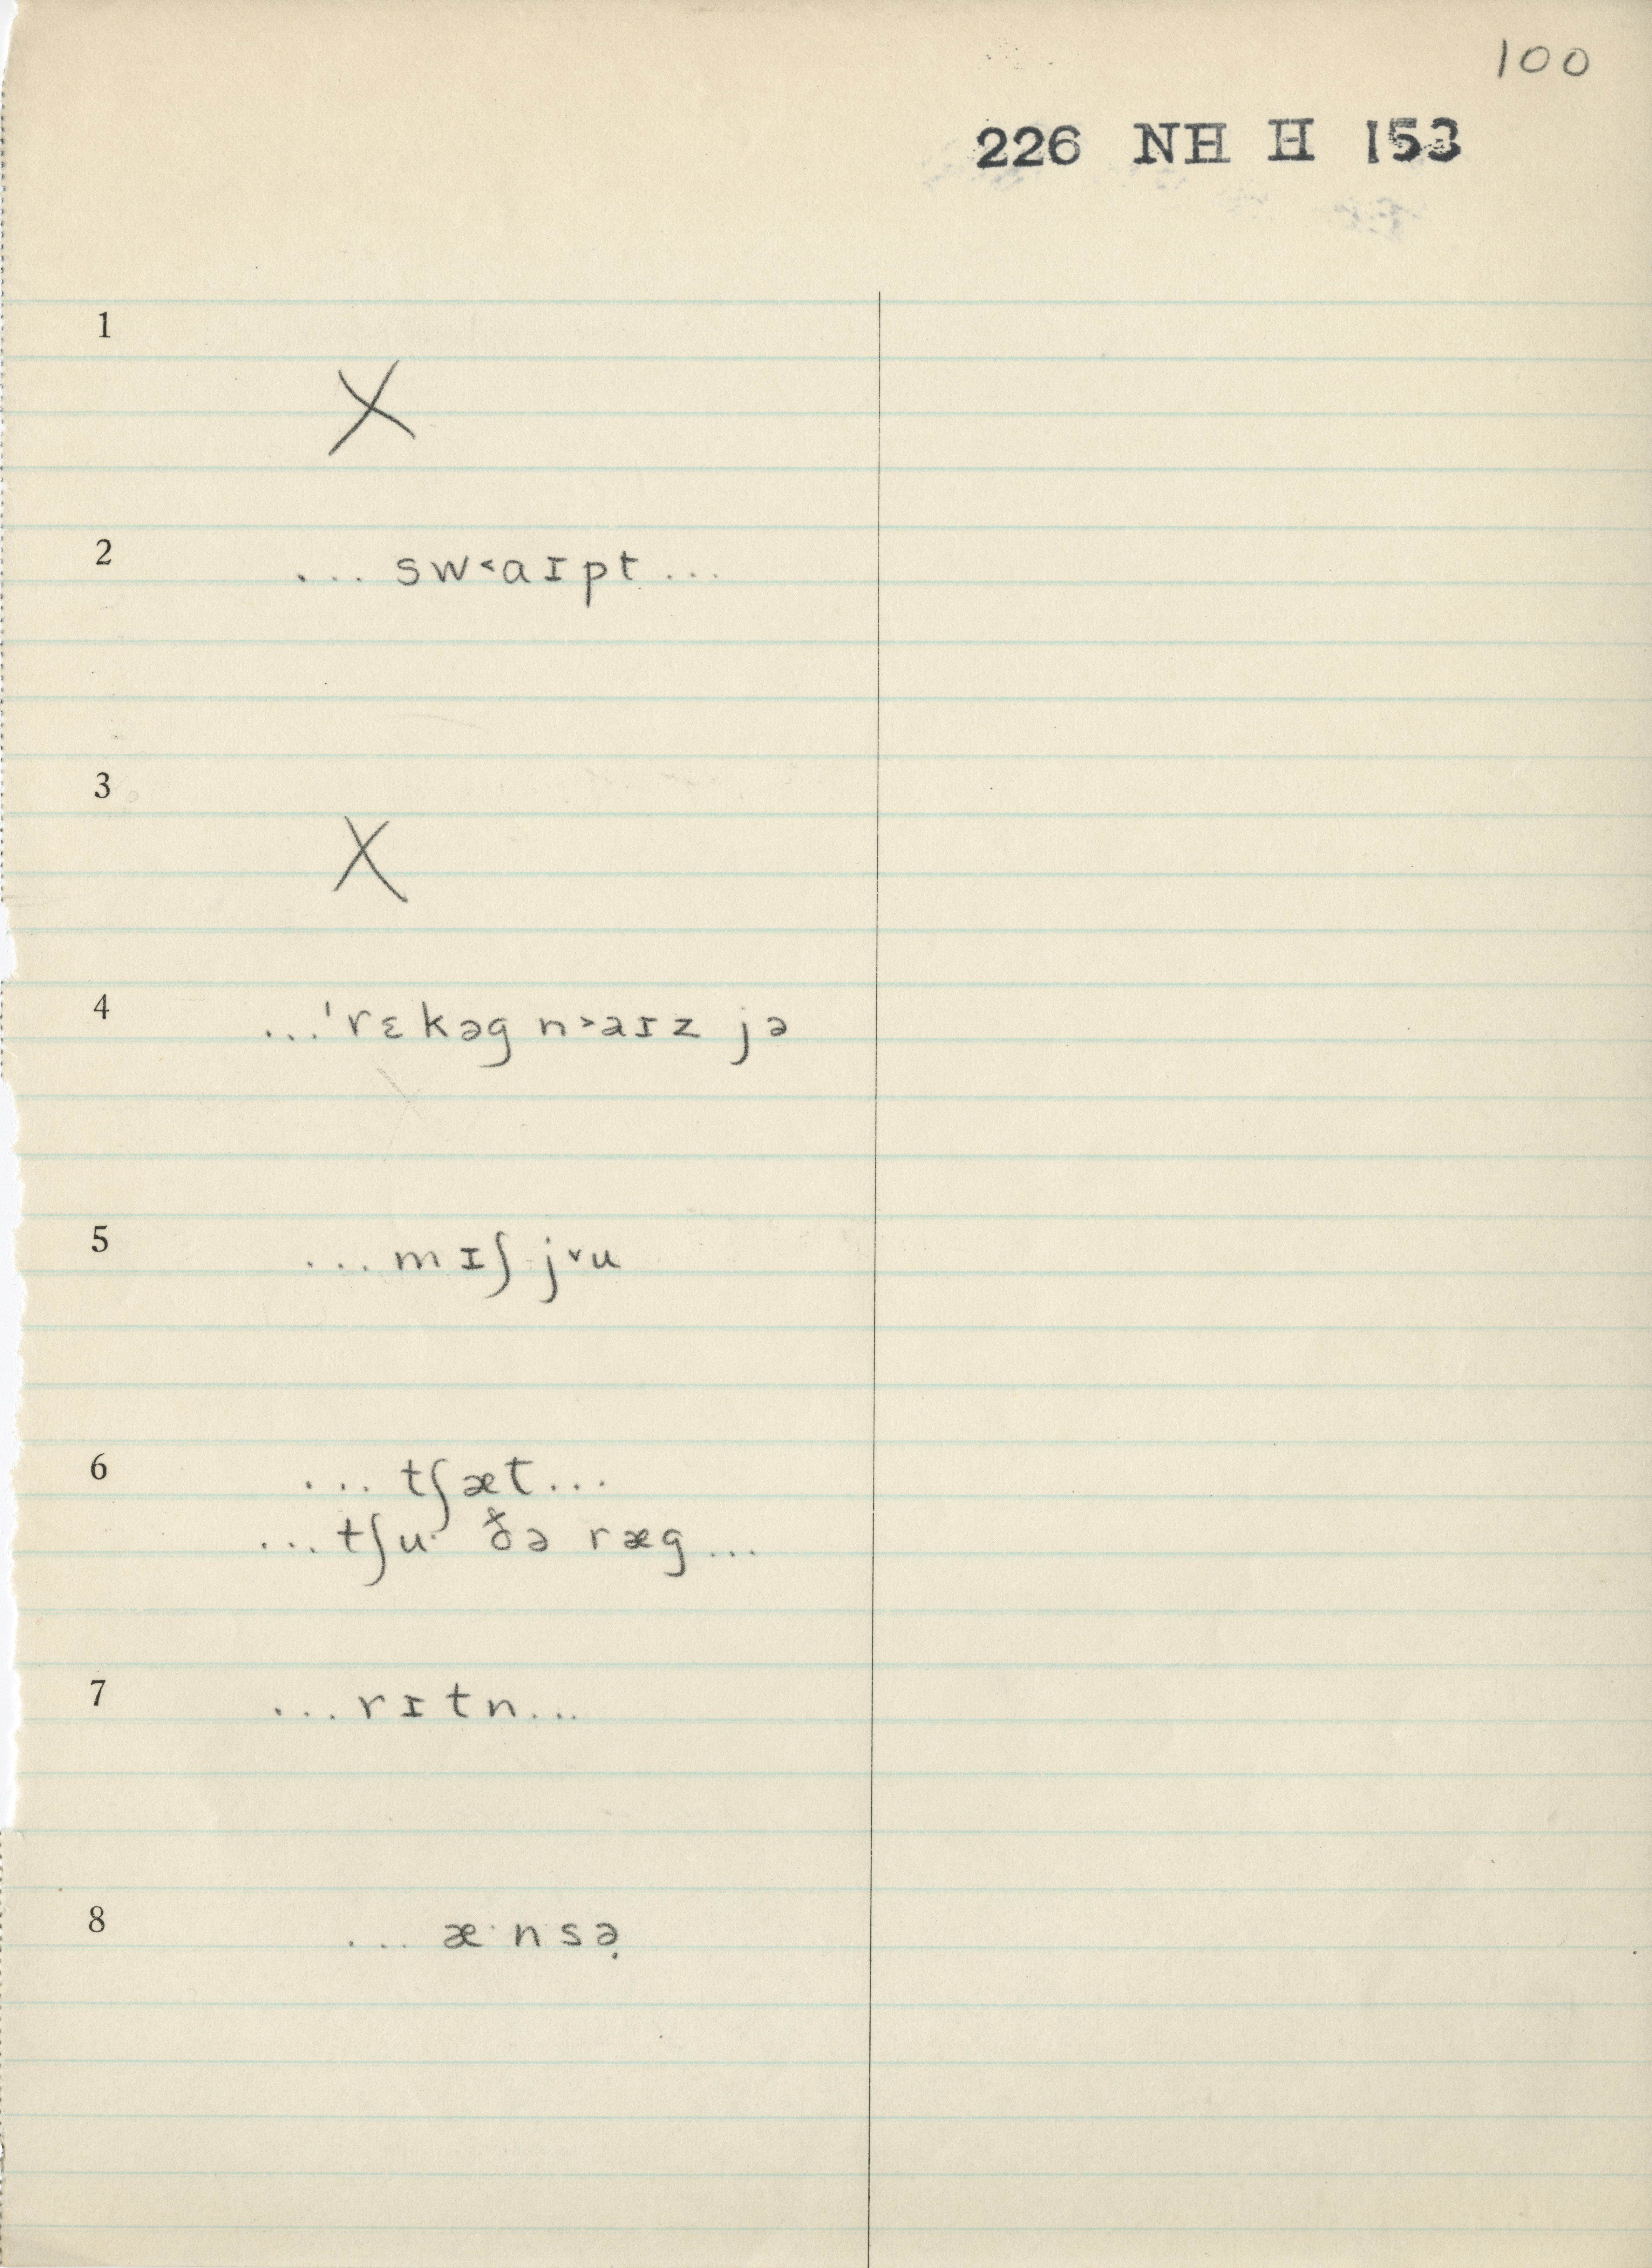 100
226 NH H 153
1
X
2 ... sw˂aɪpt ...
3
X
4 ...ˈrɛkəg n˃aɪz jə
5 ... mɪʃ j˅u
6 ... tʃæt ...
... tʃu· ðə ræg ...
7 ... rɪtn ...
8 ... æ·nsə̣